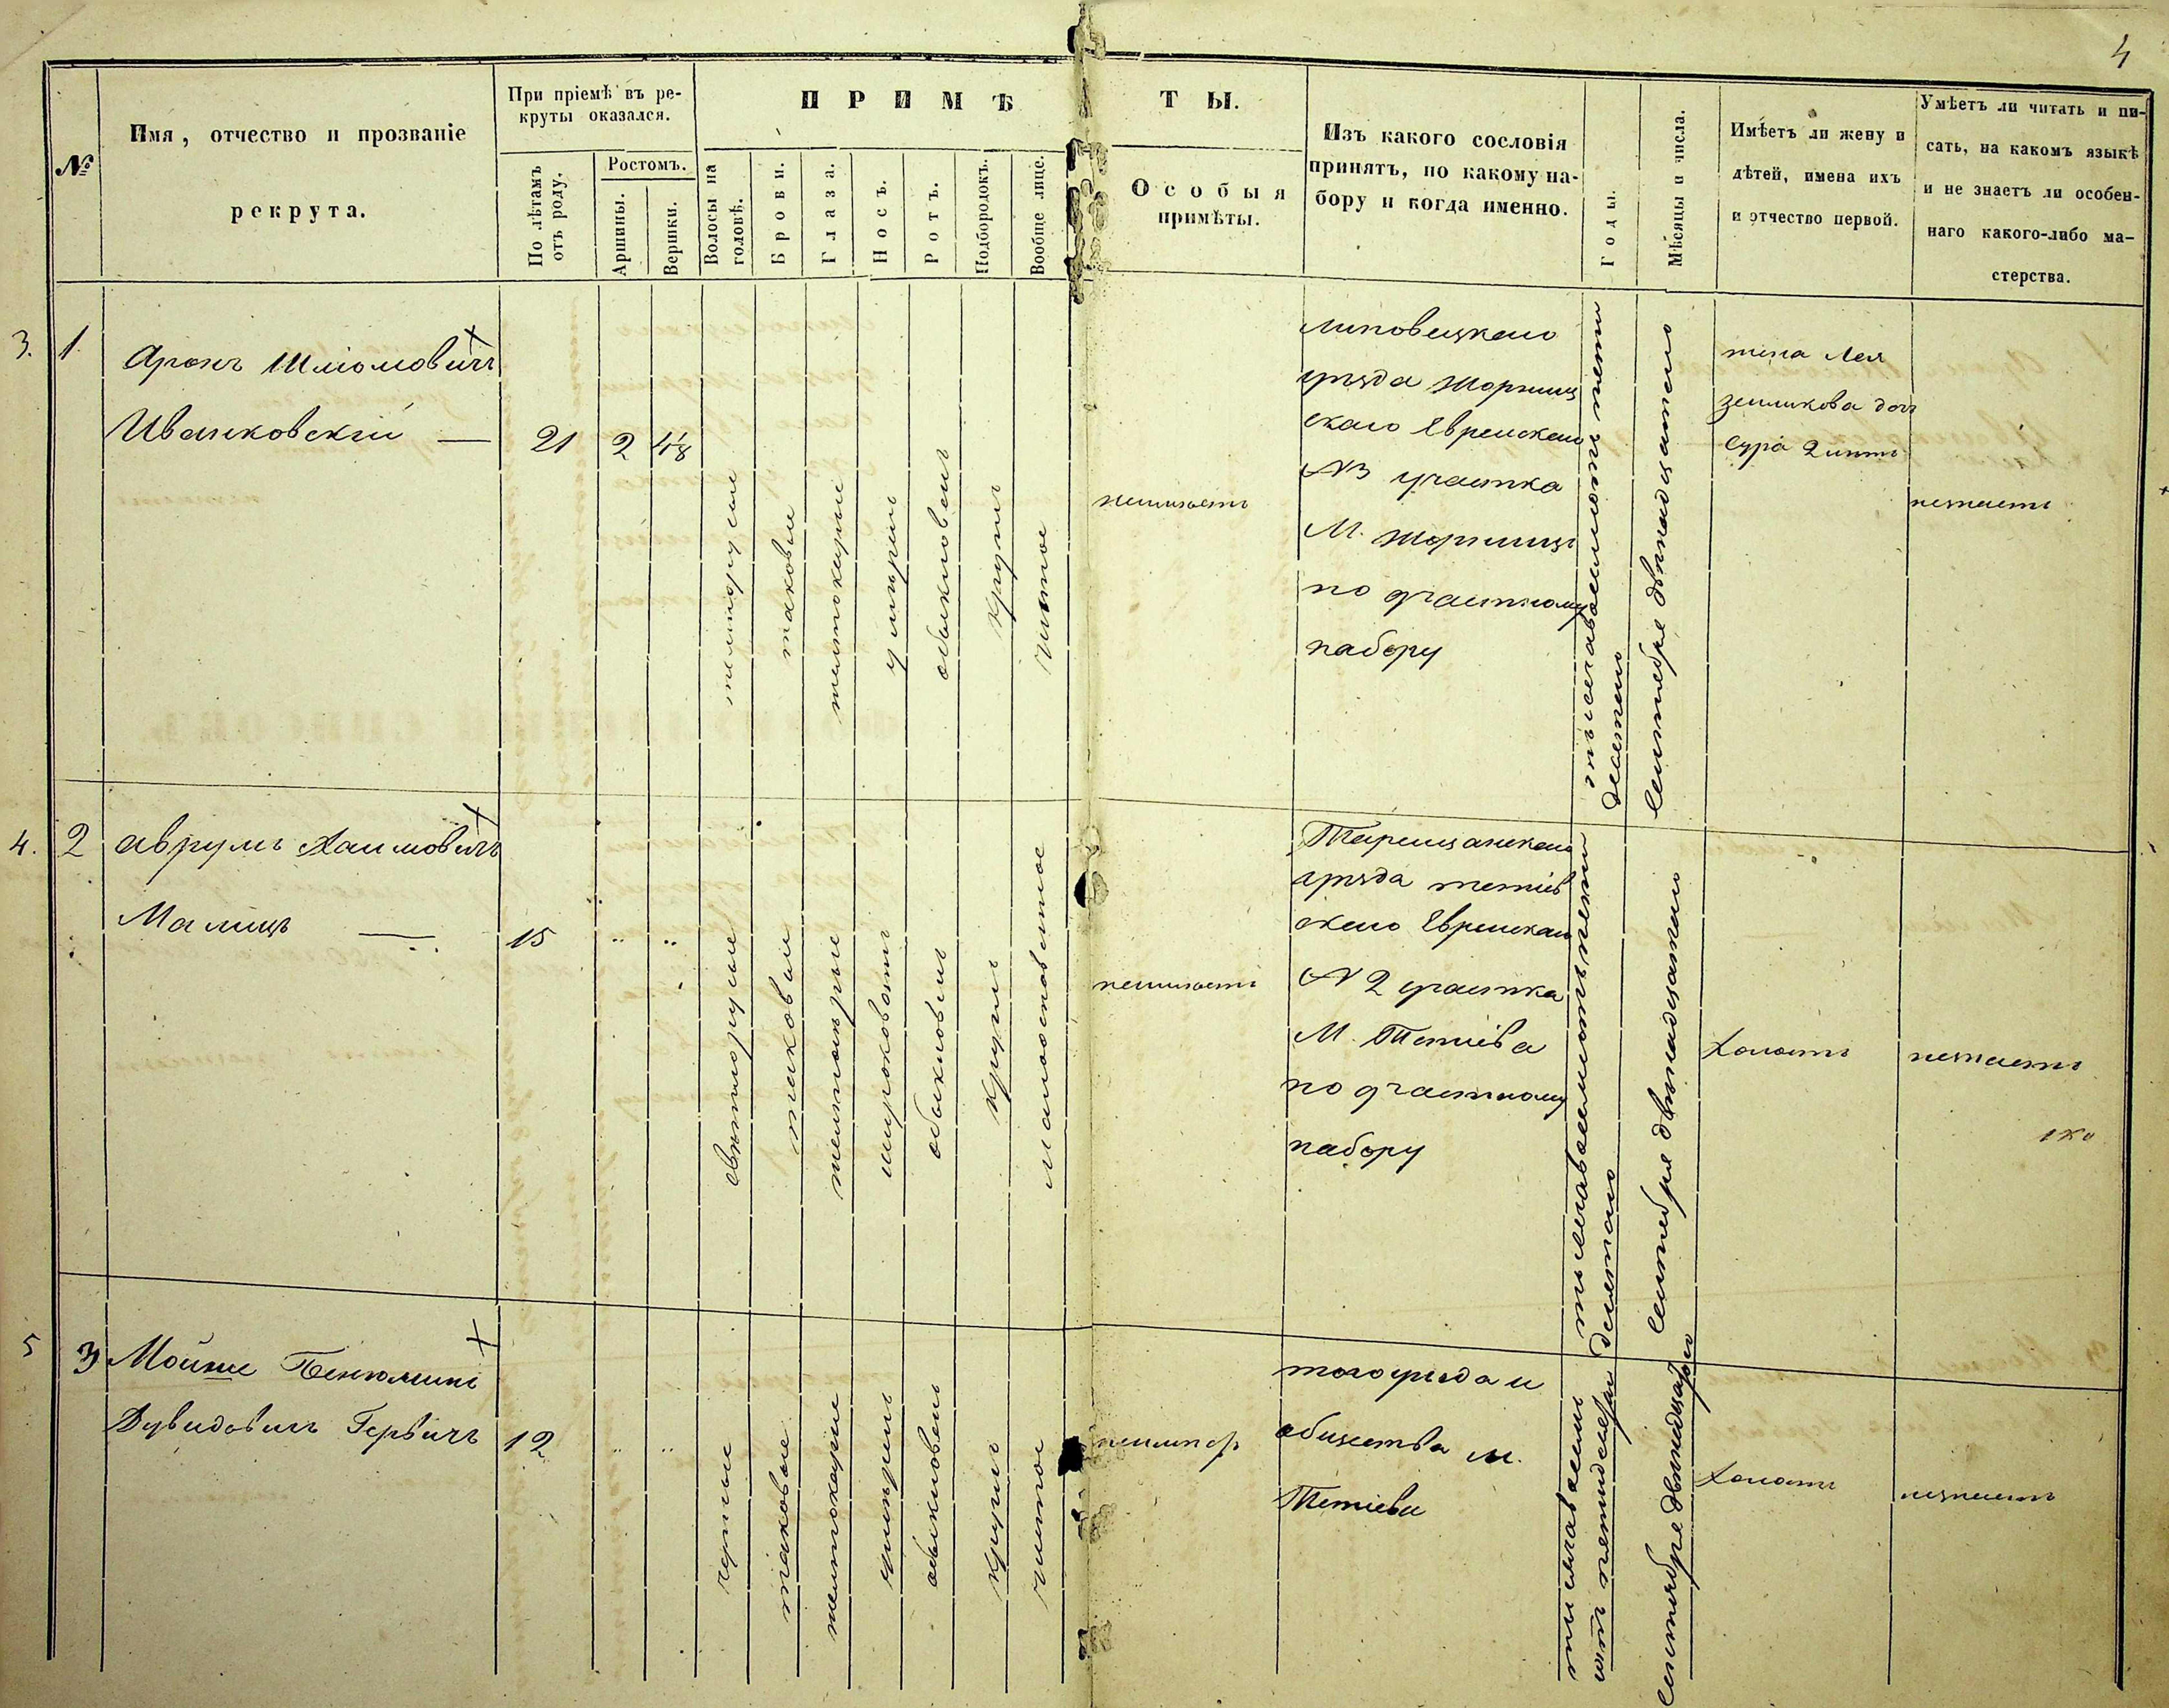 4
№
Имя, отчество и прозваніе
рекрута.
При пріемѣ въ ре-
круты оказался.
По лѣтамъ
отъ роду.
Ростомъ.
Аршины.
Вершки.
ПРИМѢ
Волосы на
головѣ.
Брови.
Глаза.
Носъ.
Ротъ.
Подбородокъ.
Вообще лице.
ТЫ.
Особыя
примѣты.
Изъ какого сословія
принятъ, по какому на-
бору и когда именно.
Годы.
Мѣсяцы и числа.
Имѣетъ ли жену и
дѣтей, имена ихъ
и отчество первой.
Умѣетъ ли читать и пи-
сать, на какомъ языкѣ
и не знаетъ ли особен-
наго какого-либо ма-
стерства.
3. 1.
Аронъ Шліомовичъ
Иванковскій —
21 2 4⅛
темнорусые
таковые
умѣрен
обыкновен
кругл
чистое
неимѣетъ
Липовецкаго
уѣзда Жорнищ
скаго Еврейскаго
№3 участка
М. Жорнищъ
по участному
набору
тысяча восемьсотъ пять
десятаго
Сентября двѣнадцатаго
жена Лея
Зеиликова доч
Сура 2 лѣтъ
незнаетъ
4. 2
Аврумъ Хаимовичъ
Малицъ —
15 " "
свѣтлорусые
таковые
темносѣрые
широковатъ
обыкновен
кругл
неимѣетъ
Таращанскаго
уѣзда Тетіев
скаго Еврейскаго
№ 2 участка
М. Тетіева
по участному
набору
тысяча восемьсотъ пять
десятаго
Сентября двѣнадцатаго
Холостъ
незнаетъ
5 3
Мойше Бенюминъ
Дувидовичъ Гервичъ
12 " "
черные
таковые
умѣрен
обыкновен
кругл
чистое
неимѣетъ
того уѣзда и
общества М.
Тетіева
Сентября двѣнадцатаго
Холостъ
незнаетъ